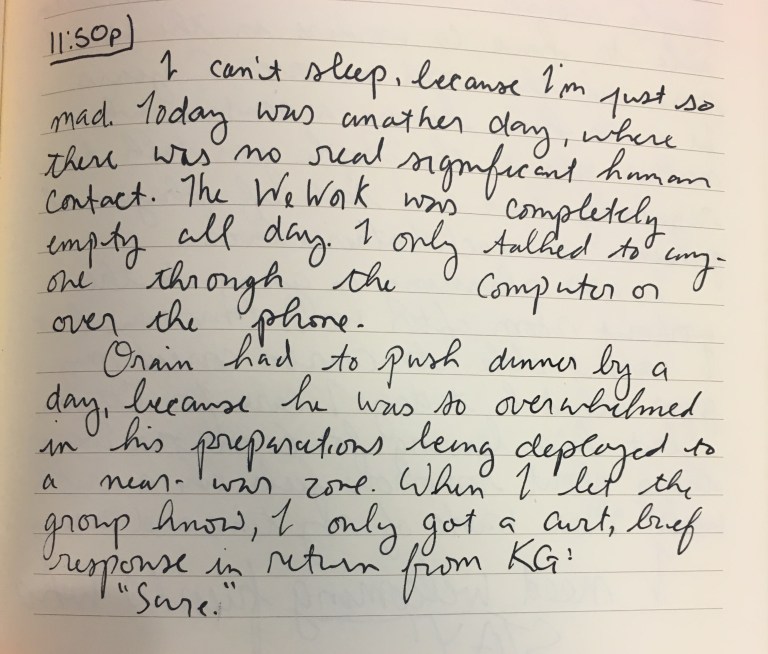 11:50p)
I can't sleep, because I'm just so
mad. Today was another day, where
there was no real significant human
contact. The WeWork was completely
empty all day. I only talked to any-
one through the computer or
over the phone.
Orain had to push dinner by a
day, because he was so overwhelmed
in his preparations being deployed to
a near-war zone. When I let the
group know, I only got a curt, brief
response in return from KG:
"Sure."